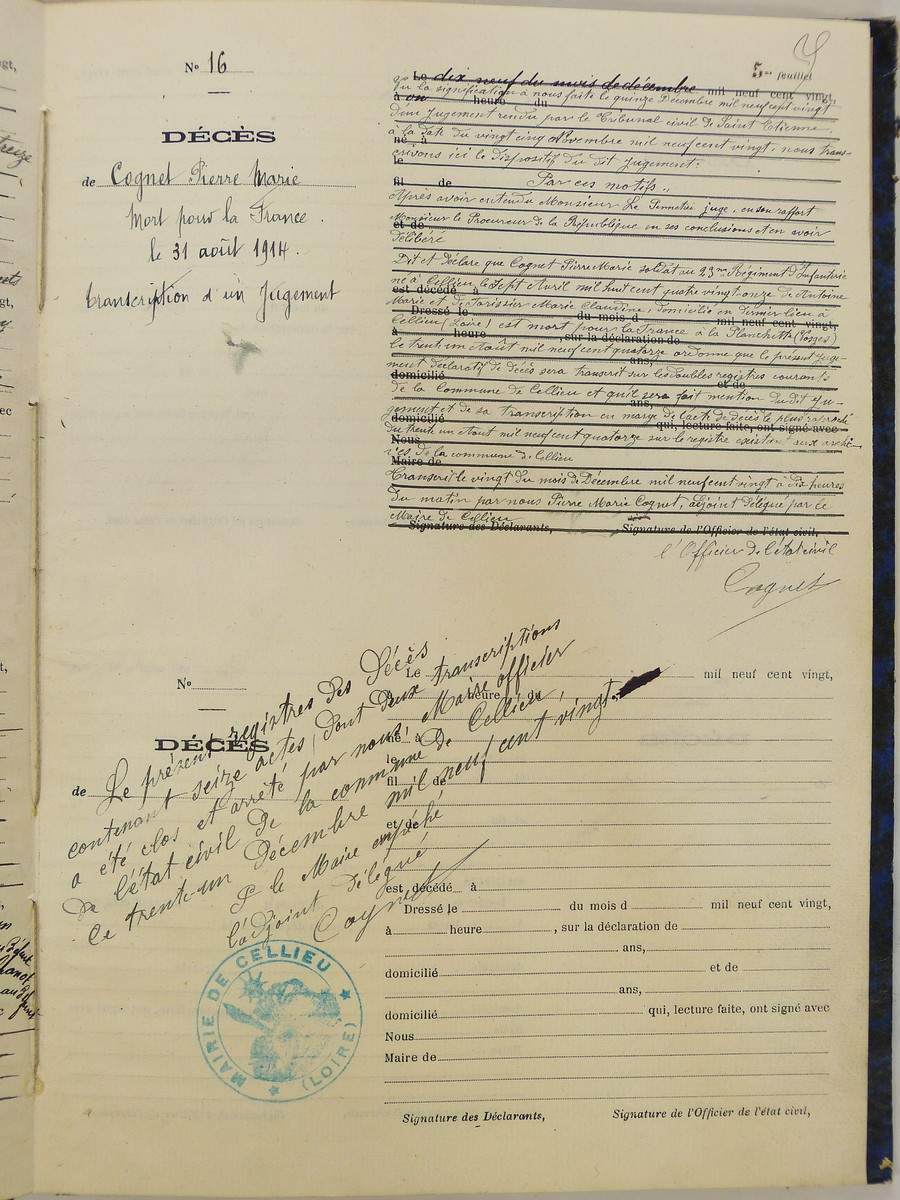 5me feuillet
No 16
DÉCÈS
de Cognet Pierre Marie
Mort pour la France.
le 31 août 1914.
transcription d'un Jugement
Le dix neuf du mois de décembre mil neuf cent vingt,
Vu la signification à nous faite le quinze Décembre mil neuf cent vingt
à on heure du
d'un Jugement rendu par le Tribunal civil de Saint Etienne,
à la date du vingt cinq Novembre mil neuf cent vingt, nous trans-
né à
crivons ici le dispositif du dit Jugement:
le
fil de
Par ces motifs,
Après avoir entendu Monsieur Le juge, en son rapport
Monsieur le Procureur de la République en ses conclusions et en avoir
et de
délibéré
Dit et déclare que Cognet Pierre Marie soldat au 23me Régiment d'Infanterie
né à Cellieu, le Sept Avril mil huit cent quatre vingt-onze de Antoine
est décédé à
Marie et de Parissier Marie Claudine, domicilié en dernier lieu à
Dressé le du mois d mil neuf cent vingt,
Cellieu (Loire) est mort pour la France à la Planchette (Vosges)
à heure , sur la déclaration de
le trente un Août mil neuf cent quatorze ordonne que le présent Juge-
ans,
ment déclaratif de décès sera transcrit sur les doubles registres courants
domicilié et de
de la Commune de Cellieu et qu'il sera fait mention du dit Ju-
ans,
gement et de sa transcription en marge de l'acte de décès le plus rapproché
domicilié qui, lecture faite, ont signé avec
du trente un Août mil neuf cent quatorze sur le registre existant aux archi-
Nous
ves de la commune de Cellieu
Maire de
Transcrit le vingt du mois de Décembre mil neuf cent vingt à dix heures
du matin par nous Pierre Marie Cognet, adjoint délégué par le
Maire de Cellieu
Signature des Déclarants, Signature de l'Officier de l'état civil,
l'Officier de l'état civil
Cognet
No
DÉCÈS
de
Le présent registres des Décès
contenant seize actes, dont deux transcriptions
a été clos et arrêté par nous Maire officier
de l'état civil de la commune de Cellieu,
ce trente-un Décembre mil neuf cent vingt.
P. le Maire empêché,
l'adjoint délégué
Cognet
MAIRIE DE CELLIEU
(LOIRE)
Le mil neuf cent vingt,
à heure du
né à
le
fil de
et de
est décédé à
Dressé le du mois d mil neuf cent vingt,
à heure , sur la déclaration de
ans,
domicilié et de
ans,
domicilié qui, lecture faite, ont signé avec
Nous
Maire de
Signature des Déclarants, Signature de l'Officier de l'état civil,